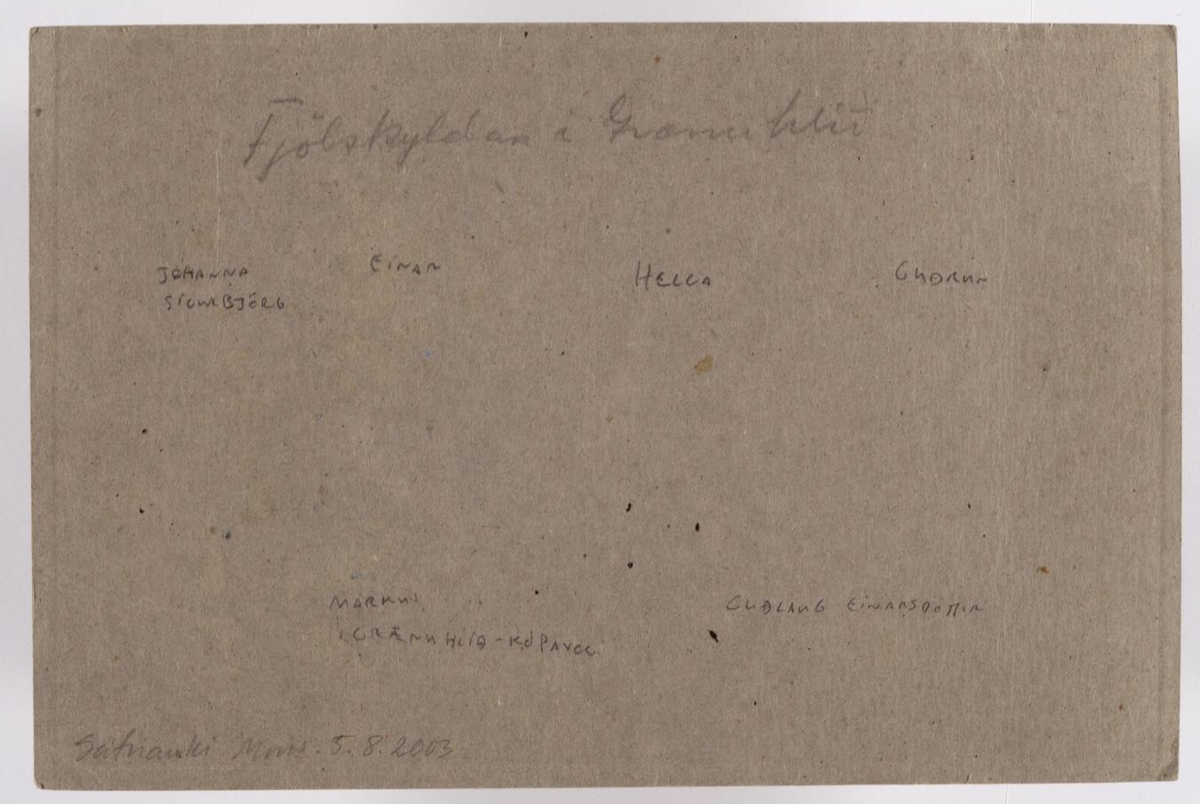 Fjölskyldan í Grænuhlíð
JÓHANNA
SIGURBJÖRG
EINAR
HELGA
GUÐRÚN
MARKÚS
Í GRÆNUHLÍÐ - KÓPAVOG
GUÐLAUG EINARSDÓTTIR
5.8.2003